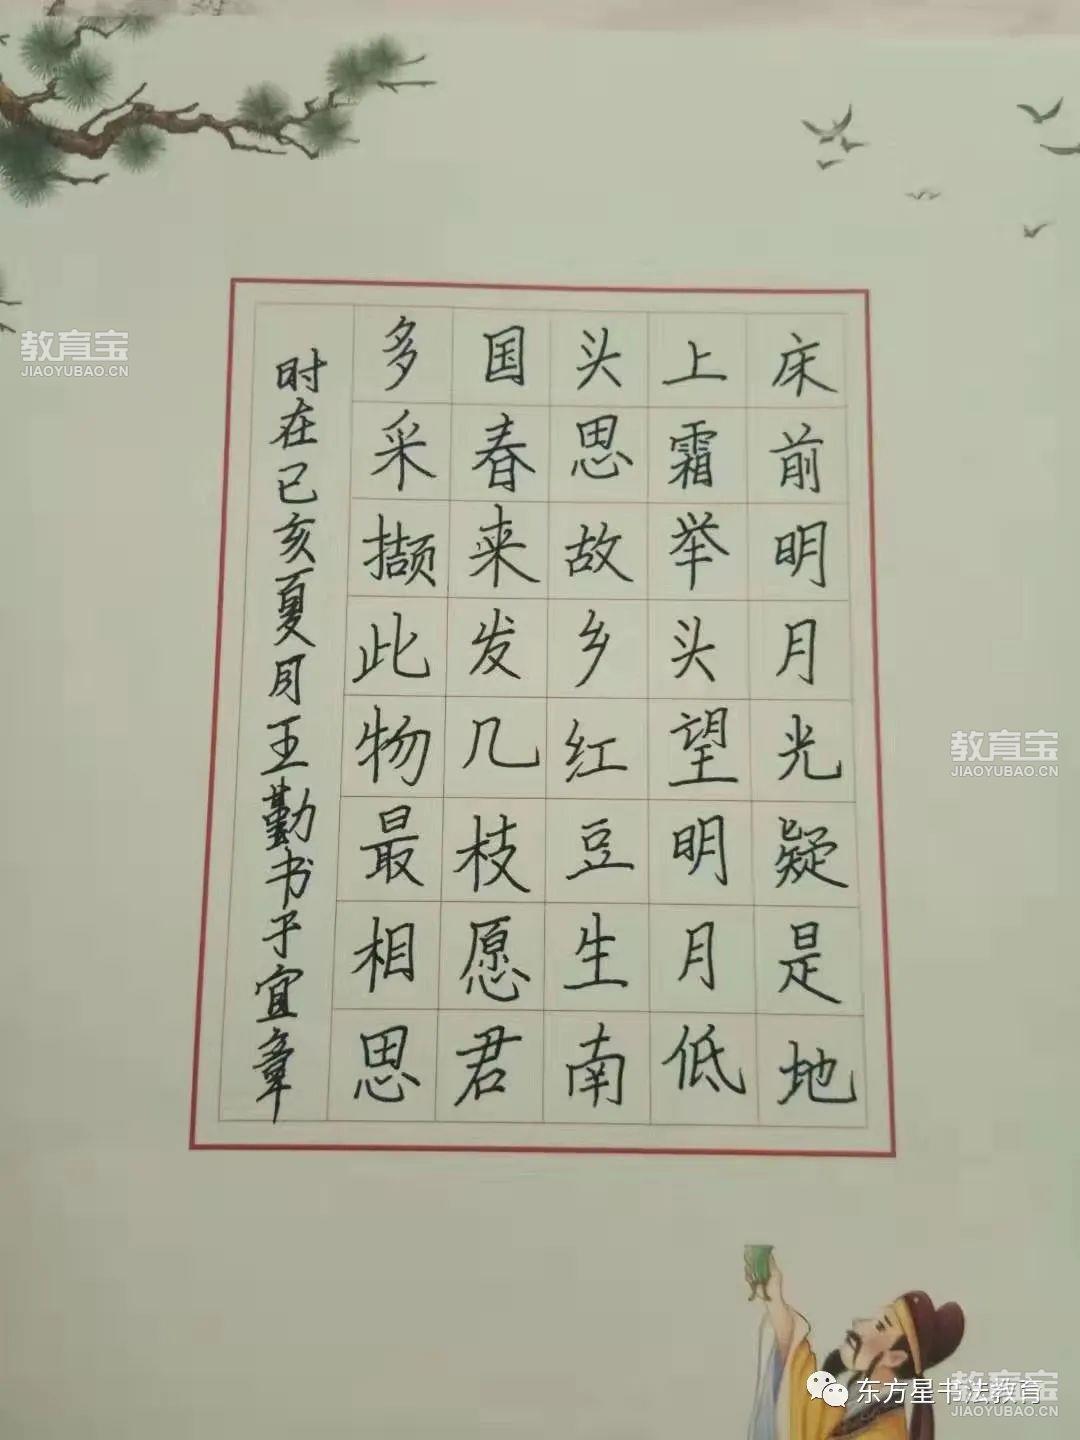 床前明月光疑是地
上霜举头望明月低
头思故乡红豆生南
国春来发几枝愿君
多采撷此物最相思
时在己亥夏月王勤书于宜章
教育宝
JIAOYUBAO.CN
教育宝
JIAOYUBAO.CN
东方星书法教育
教育宝
JIAOYUBAO.CN